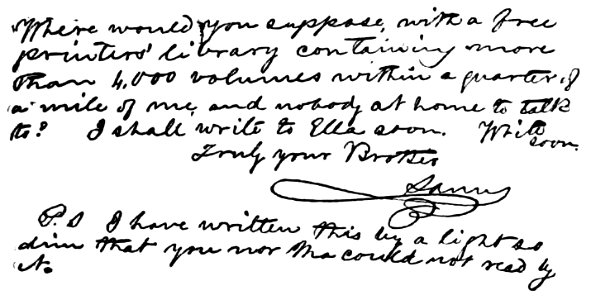 Where would you suppose, with a free
printers' library containing more
than 4,000 volumes within a quarter of
a mile of me, and nobody at home to talk
to? I shall write to Ella soon. Write
soon.
Truly your Brother
Sam
P.S I have written this by a light so
dim that you nor Ma could not read by
it.